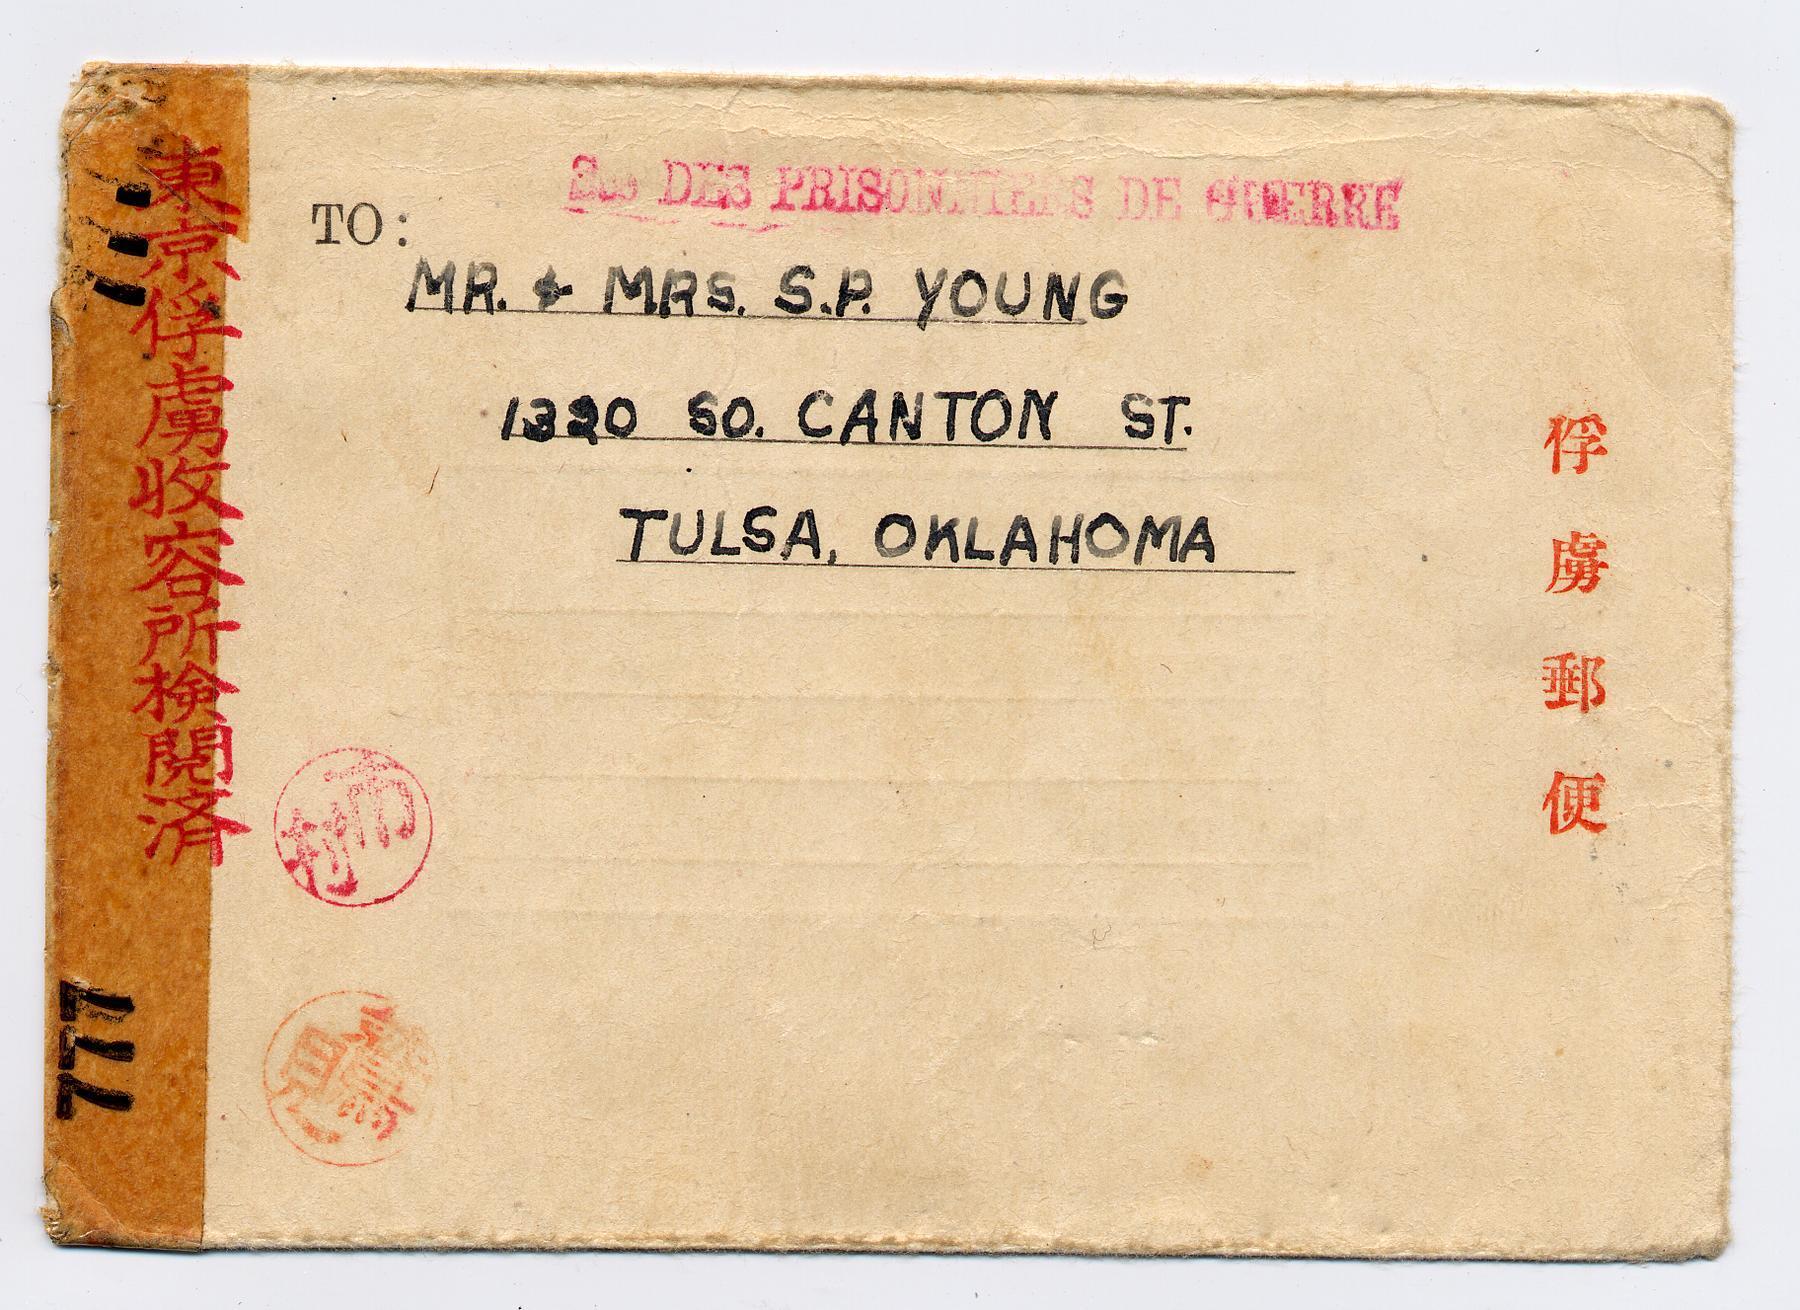 DES PRISONNIERS DE GUERRE
TO:
MR. & MRS. S.P. YOUNG
1320 SO. CANTON ST.
TULSA, OKLAHOMA
東京俘虜収容所検閲済
俘虜郵便
777